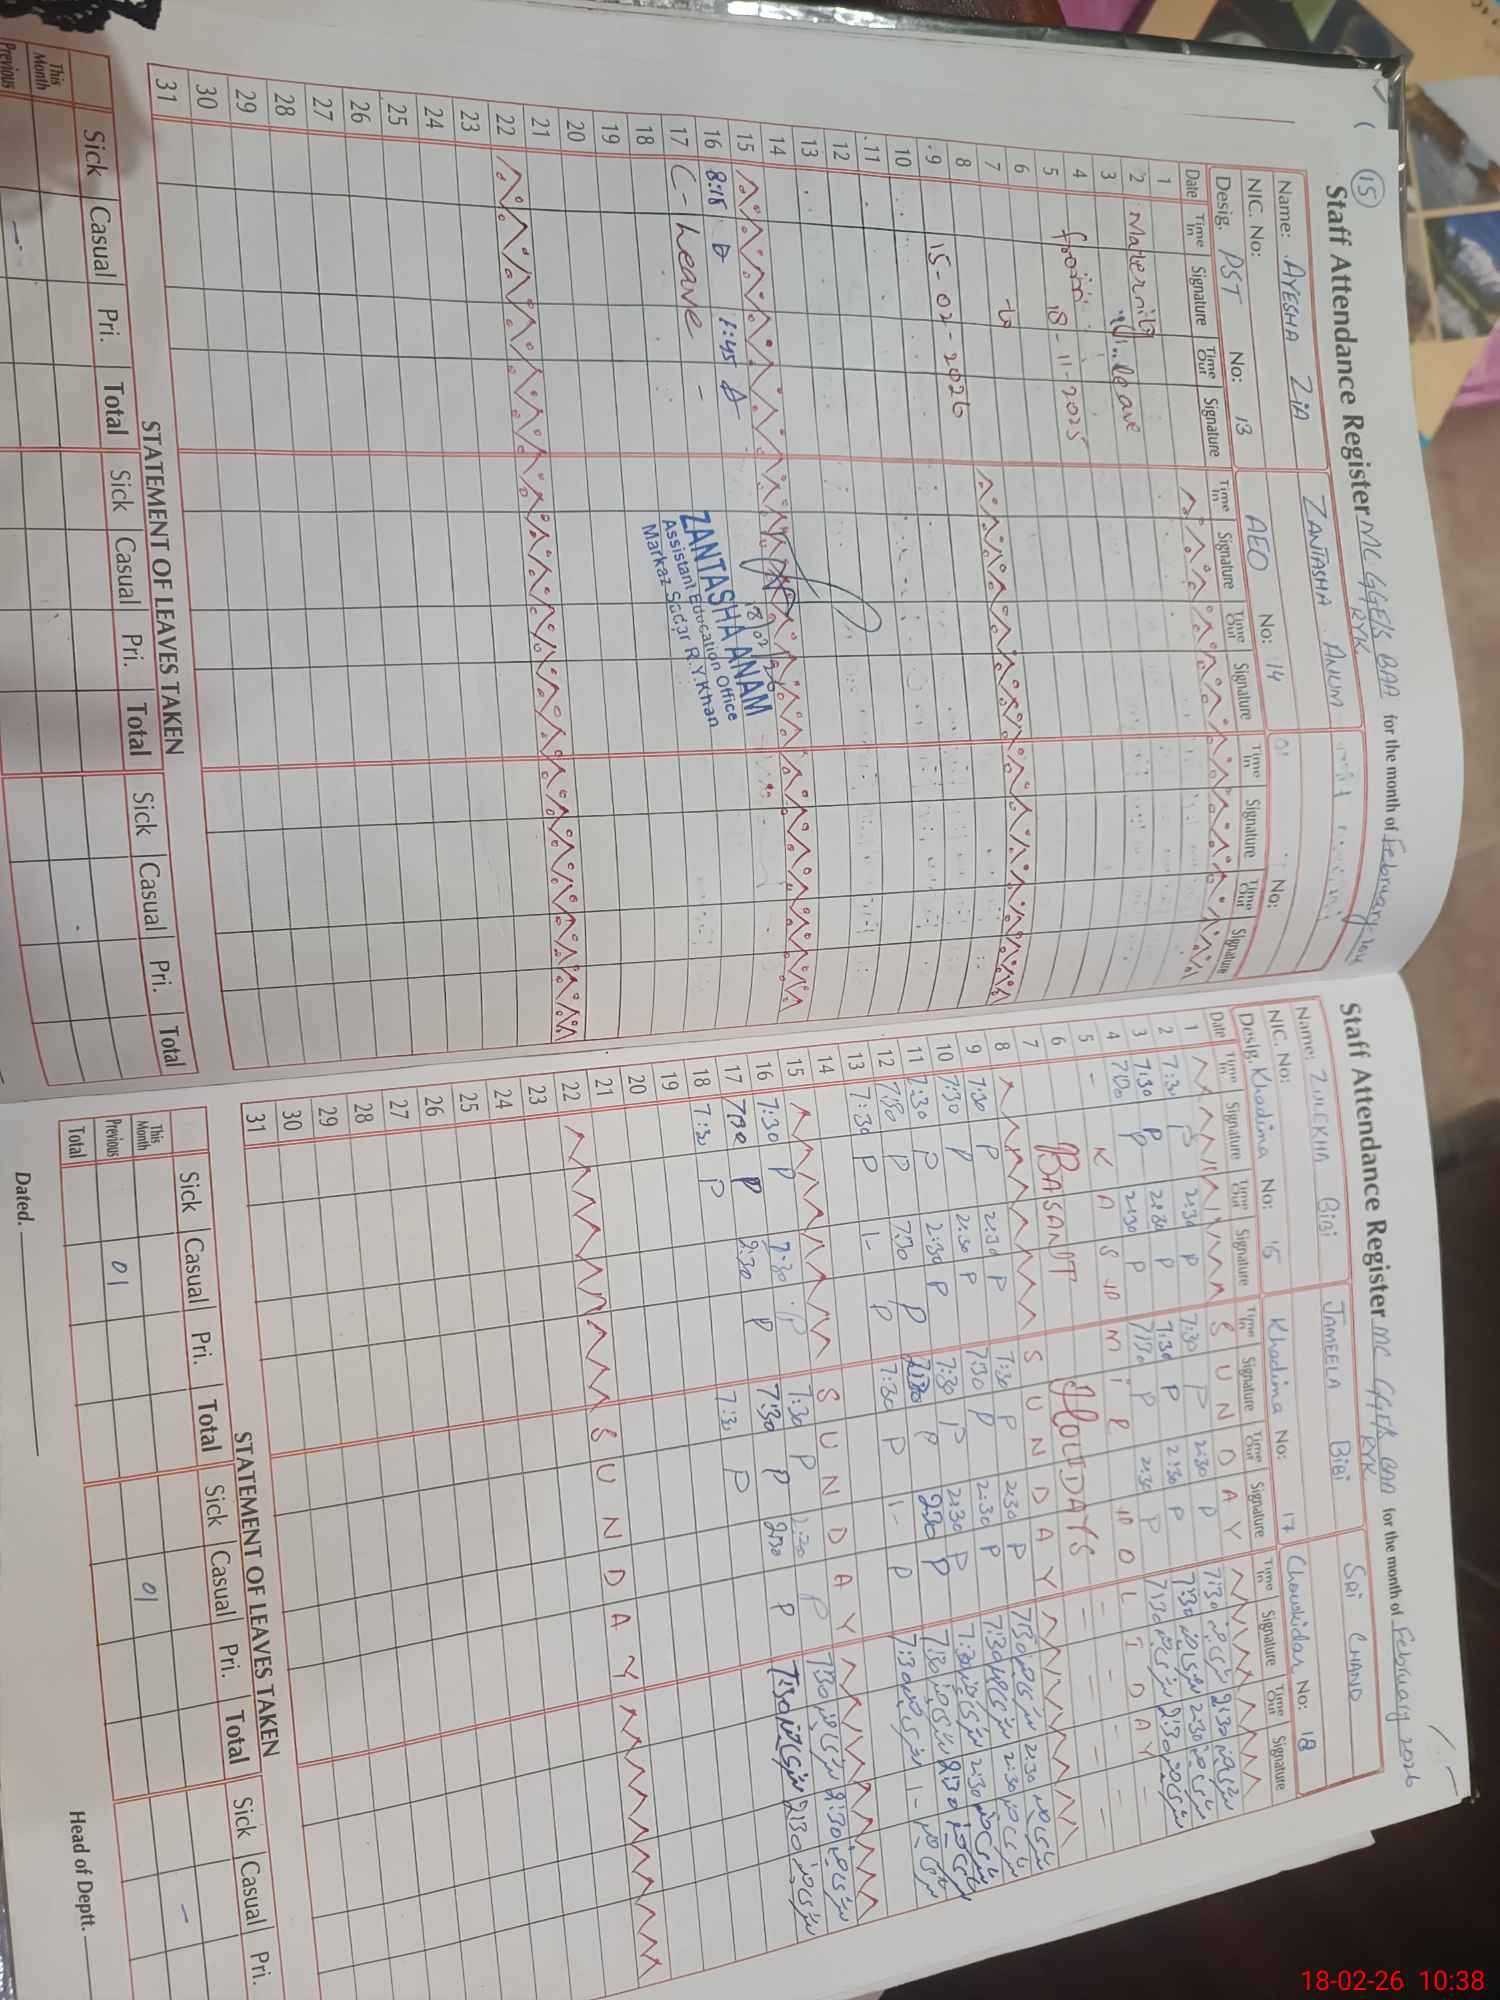 15
Staff Attendance Register MC GGE/S BAA for the month of February 2026
RYK
Name: AYESHA ZIA ZANTASHA ANUM
NIC. No:
Desig. PST No: 13 AEO No: 14 No:
Date Time In Signature Time Out Signature Time In Signature Time Out Signature Time In Signature Time Out Signature
1
2 Maternity
3 Leave
4 from
5 18-11-2025
6
7 to
8
9 15-02-2026
10
11
12
13
14
15
16 8:15 1:45
17 C- Leave -
18
19
20
21
22
23
24
25
26
27
28
29
30
31
18/02/26
ZANTASHA ANAM
Assistant Education Office
Markaz Sadar R.Y.Khan
STATEMENT OF LEAVES TAKEN
Sick Casual Pri. Total Sick Casual Pri. Total Sick Casual Pri. Total
This Month
Previous -
Staff Attendance Register MC GGE/S BAA for the month of February 2026
RYK
Name: ZULEKHA BiBi JAMEELA BiBi SRI CHAND
NIC. No:
Desig. Khadima No: 15 Khadima No: 17 Chowkidar No: 18
Date Time In Signature Time Out Signature Time In Signature Time Out Signature Time In Signature Time Out Signature
1 SUNDAY
2 7:30 P 2:30 P 7:30 P 2:30 P 7:30 2:30
3 7:30 P 2:30 P 7:30 P 2:30 P 7:30 2:30
4 7:30 P 2:30 P 7:30 P 2:30 P 7:30 2:30
5 - KASHMIR HOLIDAY -
6 BASANT HOLIDAYS - - - - -
7
8 SUNDAY
9 7:30 P 2:30 P 7:30 P 2:30 P 7:30 2:30
10 7:30 P 2:30 P 7:30 P 2:30 P 7:30 2:30
11 7:30 P 2:30 P 7:30 P 2:30 P 7:30 2:30
12 7:30 P 7:30 P 2:30 P 2:30 P 7:30 2:30
13 7:30 P 1- P 7:30 P 1- P 7:30 1-
14
15 SUNDAY
16 7:30 P 2:30 P 7:30 P 2:30 P 7:30 2:30
17 7:30 P 2:30 P 7:30 P 2:30 P 7:30 2:30
18 7:30 P 7:30 P
19
20
21
22 SUNDAY
23
24
25
26
27
28
29
30
31
STATEMENT OF LEAVES TAKEN
Sick Casual Pri. Total Sick Casual Pri. Total Sick Casual Pri.
This Month 01 -
Previous 01
Total
Dated. Head of Deptt.
18-02-26 10:38